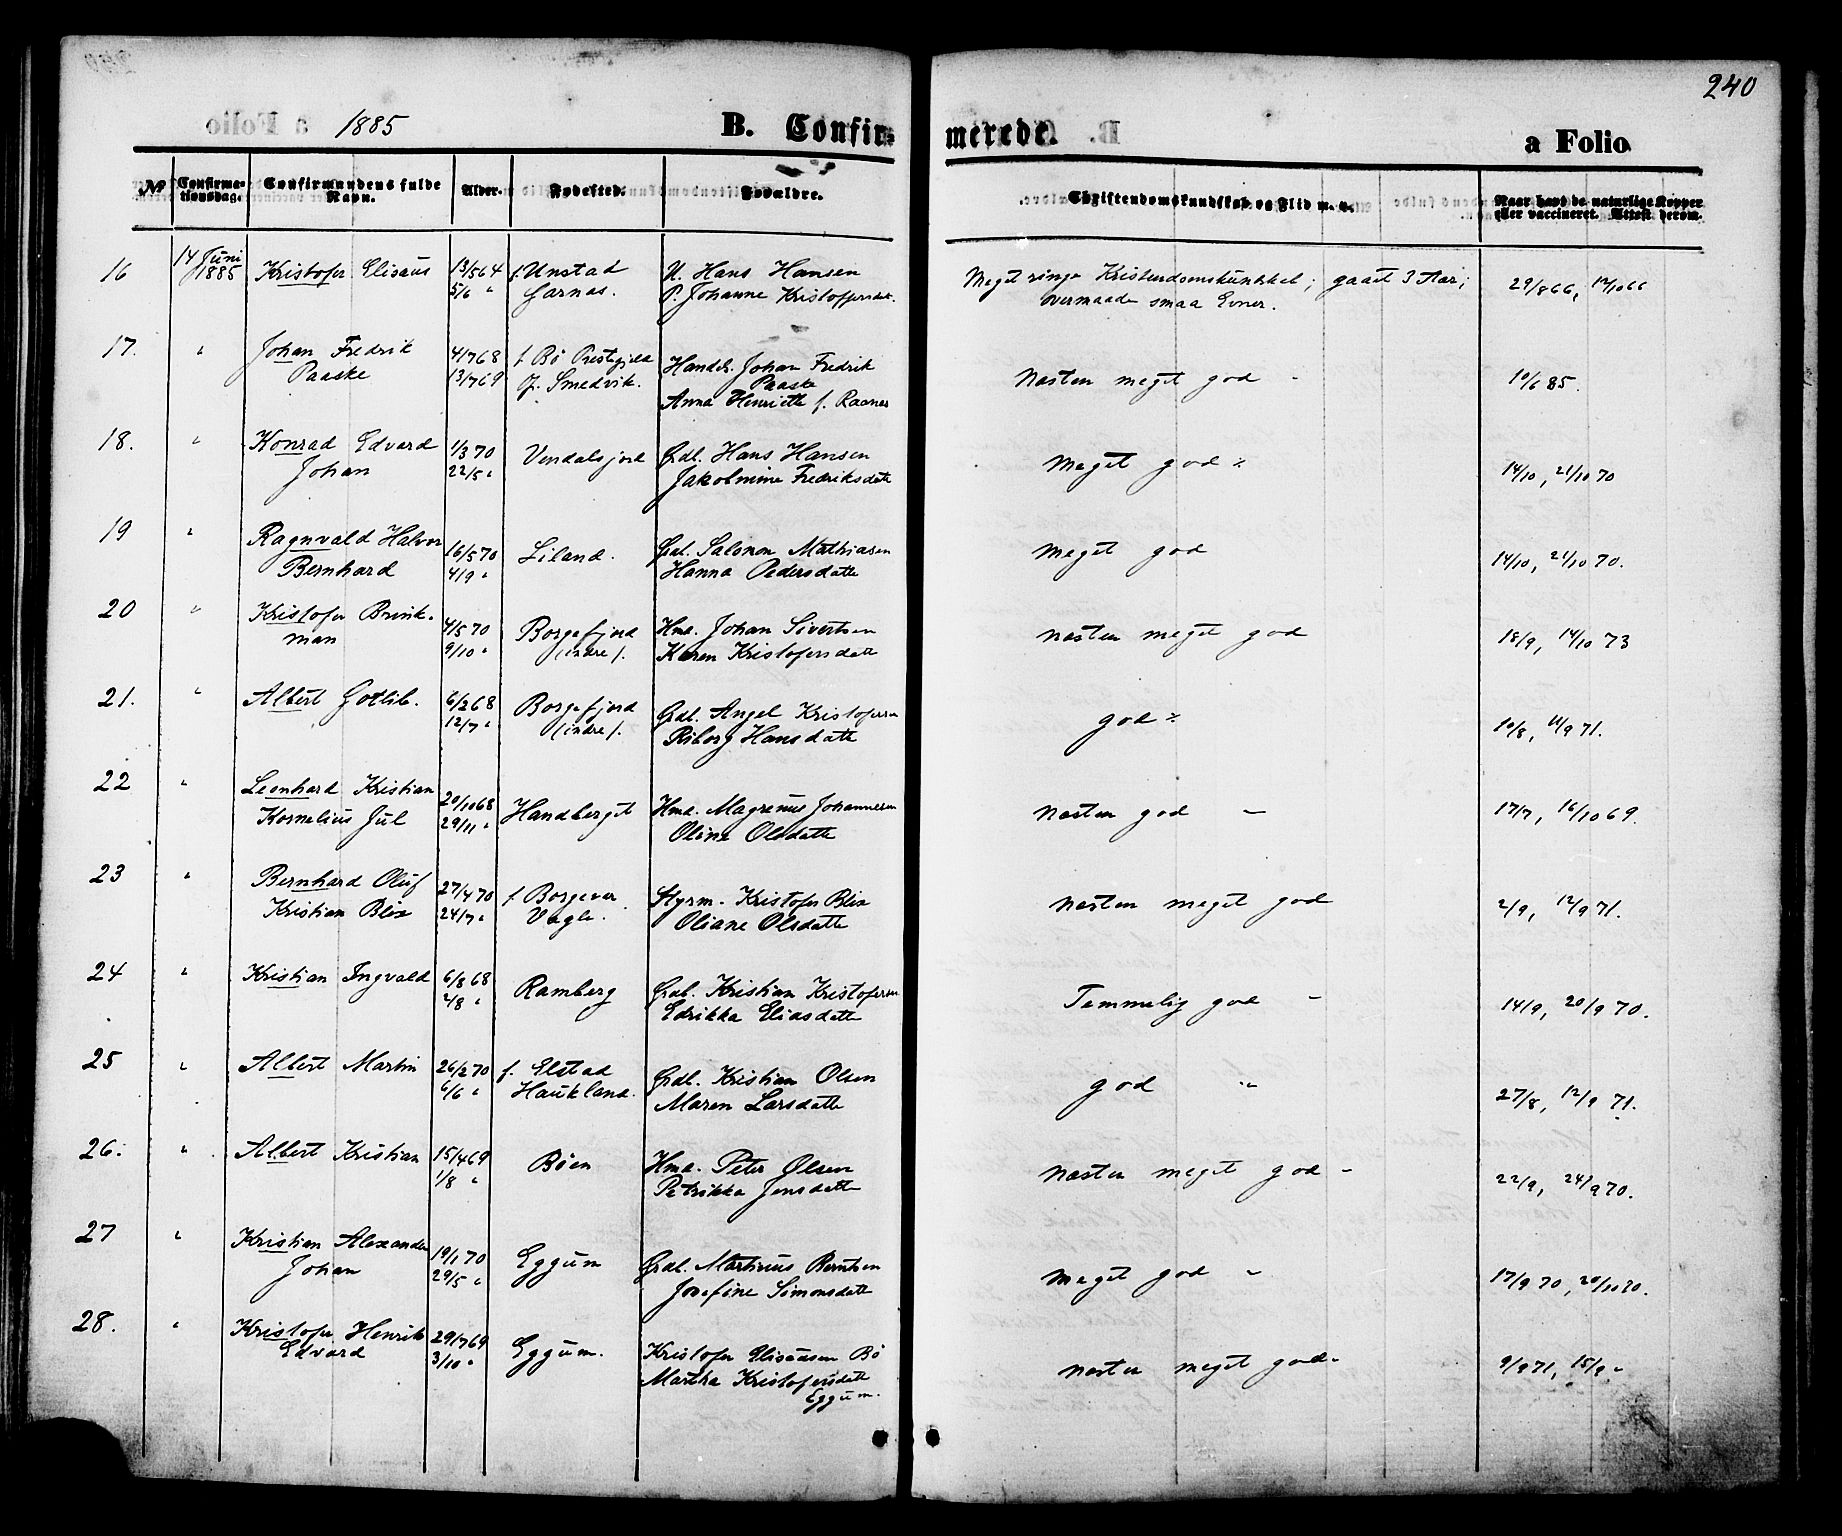 240
1885
B. Confirmerede.
a Folio
№
Confirmationsdag.
Confirmandens fulde Navn.
Alder.
Fødested.
Forældre.
Christendomskundskab og Flid m. v.
Naar havt de naturlige Kopper eller vaccineret. Attest derom.
16
14 Juni 1885
Kristofer Elisæus
13/5 64
5/6 "
f. Unstad
U. Hans Hansen
P. Johanne Kristoffersdat.
Meget ringe Kristendomskundskab; gaaet 3 Aar;
overmaade smaa Evner.
29/8 66,
17. "
Johan Fredrik
Paaske
4/7 68
13/7 69
f. Bø Prestegjeld
Smedvik.
Handel. Johan Fredrik
Paaske
Anna Henriette f. Raanes
Næsten meget god -
10/6 85.
18. "
Konrad Edvard
Johan
1/3 70
22/5 "
Vendalsjord
Grdl. Hans Hansen
Jakobmine Fredriksdatt
Meget god
14/10, 21/10 70
19 "
Ragnvald Halvor
Bernhard
16/5 70
4/9 "
Liland.
Grdl. Salomon Mathiasen
Hanna Pedersdatt
Meget god
14/10, 21/10 70.
20 "
Kristofer Brink-
man
4/5 70
9/10 "
Borgefjord
(indre).
Hmd. Johan Sivertsen
Karen Kristofersdatt
næsten meget god
18/9, 14/10 73
21. "
Albert Gotlib.
6/2 68
12/7 "
Borgefjord
(indre).
Grdl. Angel Kristofersen
Riborg Hansdatt
god
10/8, 11/9 71.
22 "
Leonhard Kristian
Kornelius Jul
20/10 68
29/11 "
Handberget
Hmd. Magrenus Johannesen
Oline Olsdatt
Næsten god -
17/7, 16/10 69.
23 "
Bernhard Oluf
Kristian Blix
27/4 70
24/7 "
f. Borgevær
Vagle.
Styrm. Kristofer Blix
Oliane Olsdatte
Næsten meget god
2/9, 12/9 71.
24 "
Kristian Ingvald
6/8 68
Ramberg
Grdb. Kristian Kristofersen
Edrikka Eliasdatt
Temmelig god -
14/9, 20/9 70.
25 "
Albert Martin
26/2 70
6/6 "
f. Elstad
Haukland.
Grdl. Kristian Olsen
Maren Larsdatte
god "
27/8, 12/9 71.
26. "
Albert Kristian
15/4 69
1/8 "
Bøen
Hmd. Peter Olsen
Petrikka Jensdatt
Næsten meget god -
22/9, 24/9 70.
27 "
Kristian Alexander
Johan
19/1 70
29/5 "
Eggum
Grdl. Martinus Berntsen
Josefine Simonsdatt
Meget god -
17/9 70, 20/10 70.
28. "
Kristofer Henrik
Edvard
29/7 69
3/10 "
Eggum.
Kristofer Elisæusen Bø
Martha Kristofersdatt
Eggum.
Næsten meget god -
9/9 71, 15/9 "